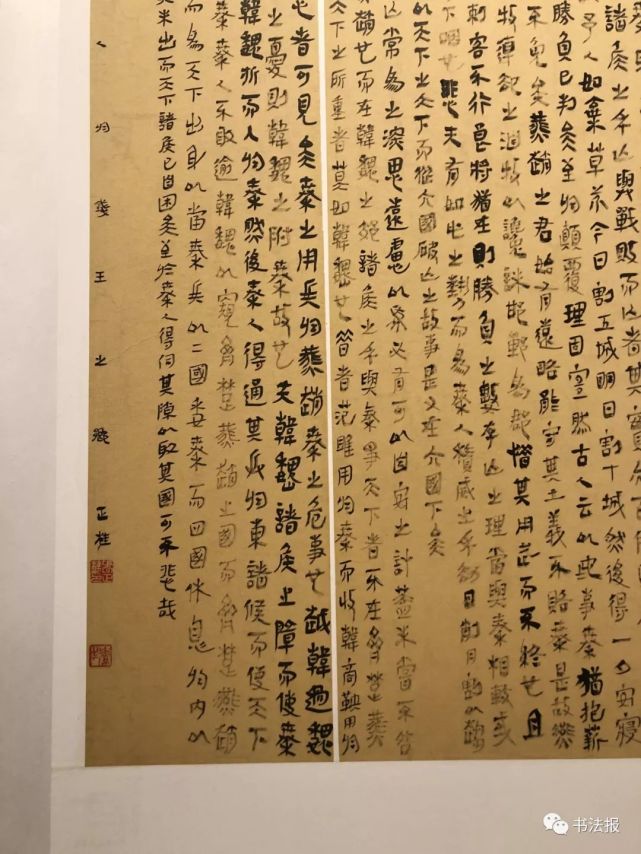 諸侯之所亡與戰敗而亡者其實
予人如棄草芥今日割五城明日割十城然後得一夕安寢
勝負已判矣至於顛覆理固宜然古人云以地事秦猶抱薪
不免矣燕趙之君始有遠略能守其土義不賂秦是故燕
牧得欲之洎牧以讒誅邯鄲為郡惜其用武而不終也且
刺客不行良將猶在則勝負之數存亡之理當與秦相較或
下咽也悲夫有如此之勢而為秦人積威之所劫日削月割以趨
以天下之大下而從六國破亡之故事是又在六國下矣
常為之深思遠慮以為必有可以自安之計蓋未嘗不咎
趙也而在韓魏之郊諸侯之所與秦爭天下者不在齊楚燕
天下之所重者莫如韓魏也昔者范雎用於秦而收韓商鞅用於
此者可見矣秦之用兵於燕趙秦之危事也越韓過魏
之憂則韓魏之附秦故也夫韓魏諸侯之障而使秦
韓魏折而入於秦然後秦人得通其兵於東諸侯而使天下
秦秦人不敢逾韓魏以窺齊楚燕趙之國而齊楚燕趙
而為天下出身以當秦兵以二國委秦而四國休息於內以
未出而天下諸侯已自困矣至於秦人得伺其隙以取其國可不悲哉
王之 正桂
书法报